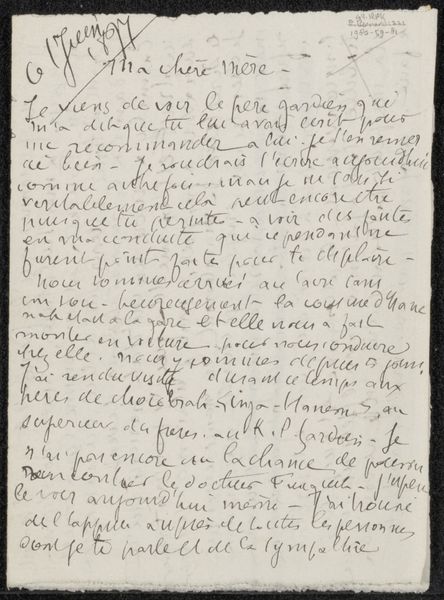 6 Juin
1897
Ma chère mère -
Je viens de voir le père gardien qui
m'a dit que tu lui avais écrit pour
me recommander à lui. je t'en remercie
bien - Je voudrais t'écrire aujourd'hui
comme autrefois. mais je ne sais si
veritablement cela peut encore être
puisque tu persiste - a voir des fautes
en ma conduite qui cependant ne
furent point faites pour te déplaire -
nous sommes arrivés au Caire sans
un sou - heureusement la cousine
à la gare et elle nous a fait
monter en voiture pour nous conduire
chez elle. nous y sommes depuis 5 jours
J'ai rendu visite durant ce temps aux
pères de au
superieur des frères. au R. P. Gardien - Je
n'ai pas encore eu la chance de pouvoir
rencontrer le docteur J'espère
le voir aujourd'hui même - J'ai trouvé
de l'appui auprès de toutes les personnes
dont je te parle et de la sympathie